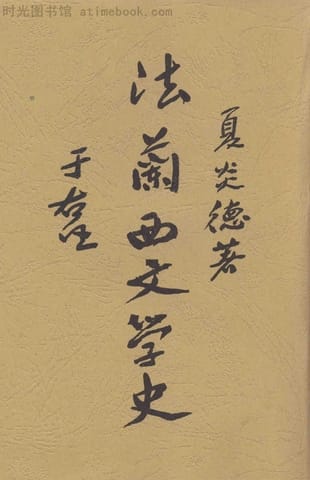 时光图书馆 atimebook.com
夏炎德著
法蘭西文学史
于右任